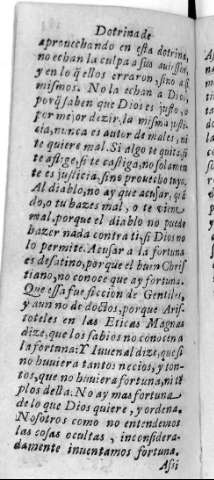 Dotrina de
aprouechando en esta dotrina,
no echan la culpa a sus
y en lo q̃ ellos erraron, sino a si
mismos. No la echan a Dios,
porq̃ saben que Dios es justo, o
por mejor dezir, la misma justi-
cia, nunca es autor de males, ni
te quiere mal. Si algo te quita, si
te aflige, si te castiga, no solamen
te es justicia, sino prouecho tuyo.
Al diablo, no ay que acusar, quã
do, o tu hazes mal, o te viene
mal, porque el diablo no puede
hazer nada contra ti, si Dios no
lo permite. Acusar a la fortuna
es desatino, porque el buen Chris
tiano, no conoce que ay fortuna.
Que essa fue ficcion de Gentiles,
y aun no de doctos, porque Aris-
toteles en las Eticas Magnas
dize, que los sabios no conocen a
la fortuna: Y Iuuenal dize, que si
no huuiera tantos necios, y ton-
tos, que no huuiera fortuna, ni tẽ
plos della: No ay mas fortuna
de lo que Dios quiere, y ordena.
Nosotros como no entendemos
las cosas ocultas, inconsidera-
damente inuentamos fortuna.
Assi